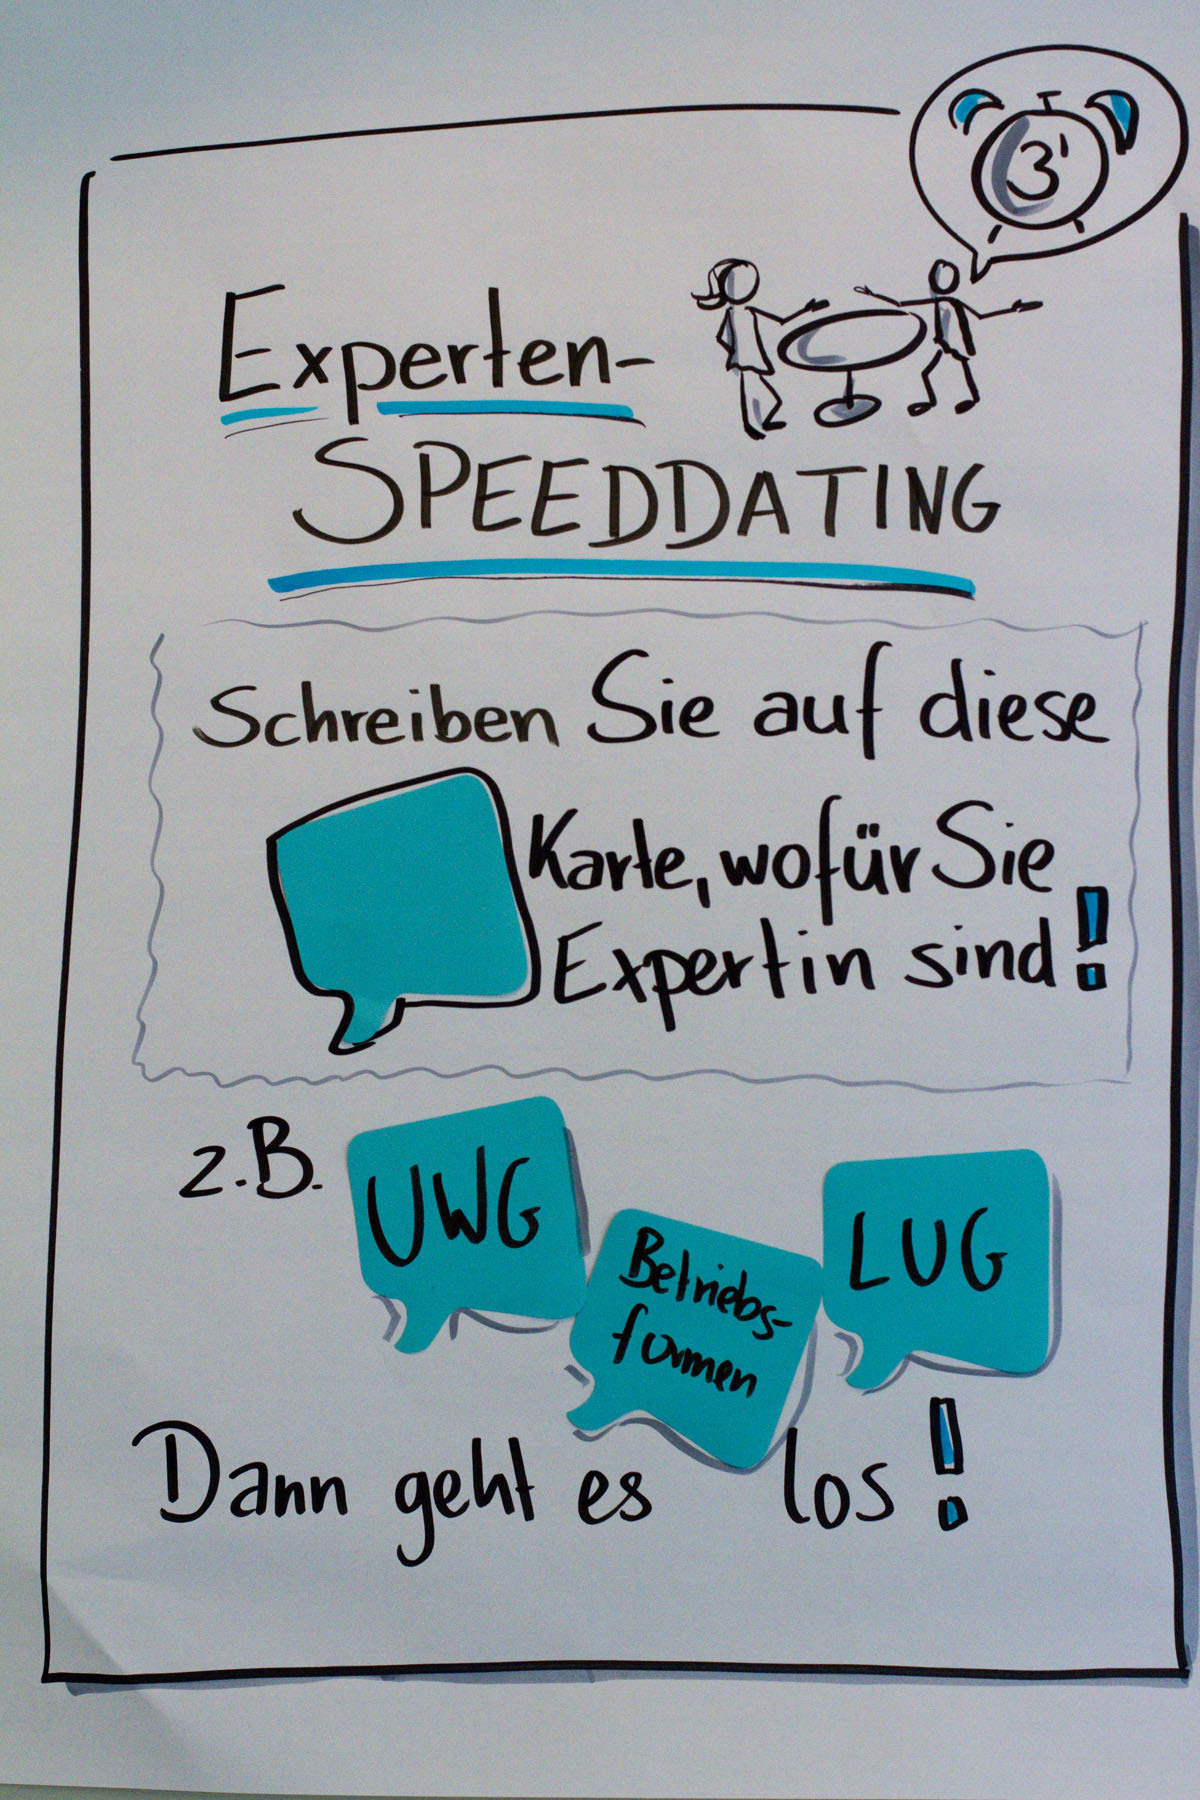 3'
Experten-
SPEEDDATING
Schreiben Sie auf diese
Karte, wofür Sie
Expertin sind!
z.B.
UWG
Betriebs-
formen
LUG
Dann geht es los!